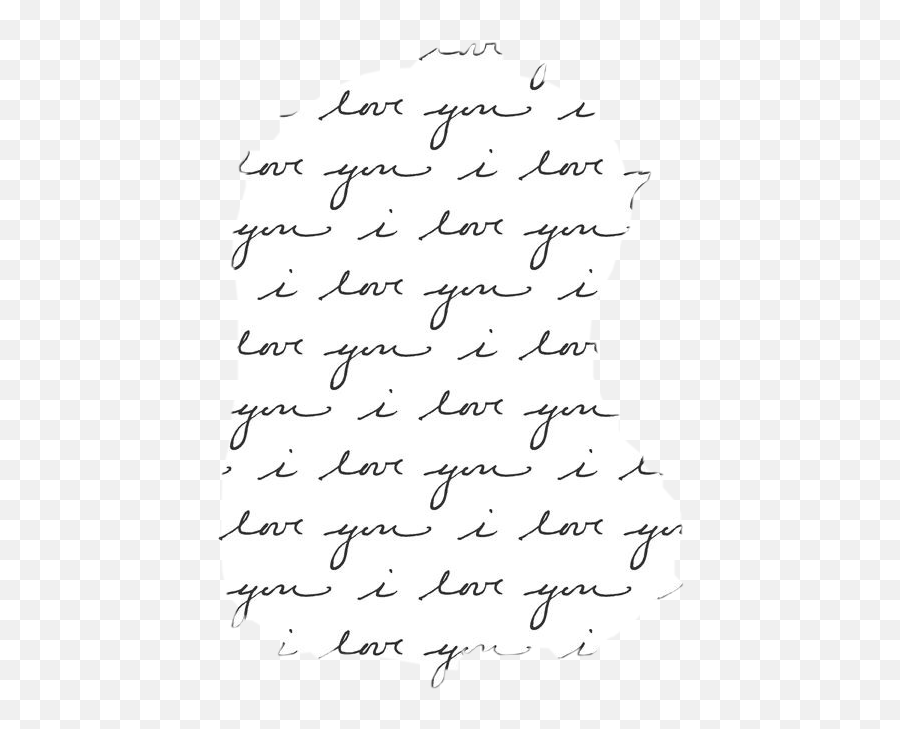 love
love you i
love you i love
you i love you
i love you i
love you i love
you i love you
i love you i
love you i love you
you i love you
i love you i